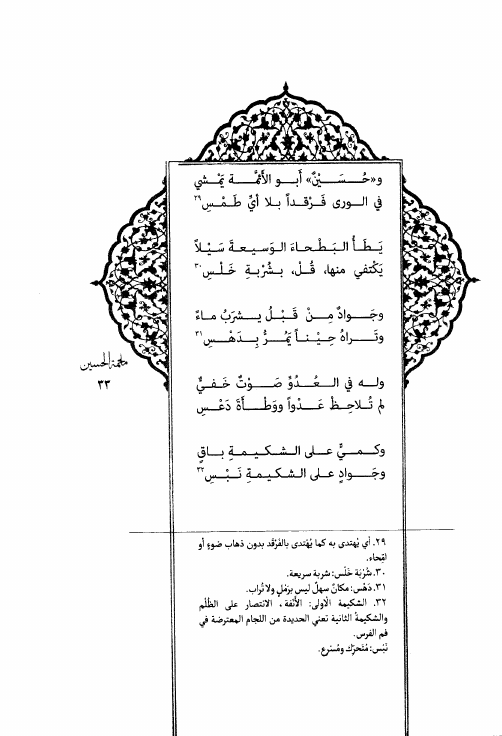 و«حُسَـيْنٌ» أبـو الأئمَّـة يَمْشي
في الـورى فَـرْقَـداً بـلا أيِّ طَمْـسِ٢٩
يَـطَـأُ الـبَـطْـحـاءَ الـوَسـيـعـةَ سَـيْـلاً
يَكْتفي منها، قُـلْ، بـشُرْبـةِ خَلْـسِ٣٠
وجَـوادٌ مِـنْ قَـبْـلُ يـشـرَبُ مـاءً
وتَـراهُ حِيْـنـاً يَمُـرُّ بِـدَهْـسِ٣١
ولـه في الـعُـدُوِّ صَـوْتٌ خَـفـيٌّ
لم تُـلاحِـظْ عَـدْواً ووَطْـأةَ دَعْـسِ
وكـمـيٍّ عـلى الـشـكـيـمـةِ بـاقٍ
وجَـوادٍ على الشكيمـةِ نَـبْـسِ٣٢
ملحمة الحسين
٣٣
٢٩. أي يُهتدى به كما يُهْتدى بالفَرْقد بدون ذهاب ضوءٍ أو
امّحاء.
٣٠. شُرْبَة خَلْس: شربة سريعة.
٣١. دَهْس: مكانٌ سهلٌ ليس برَمْلٍ ولا تُراب.
٣٢. الشكيمة الأولى: الأنَفَة، الانتصار على الظُلْم
والشكيمةُ الثانية تعني الحديدة من اللجام المعترضة في
فم الفرس.
نَبْس: مُتَحرِّك ومُسْرع.